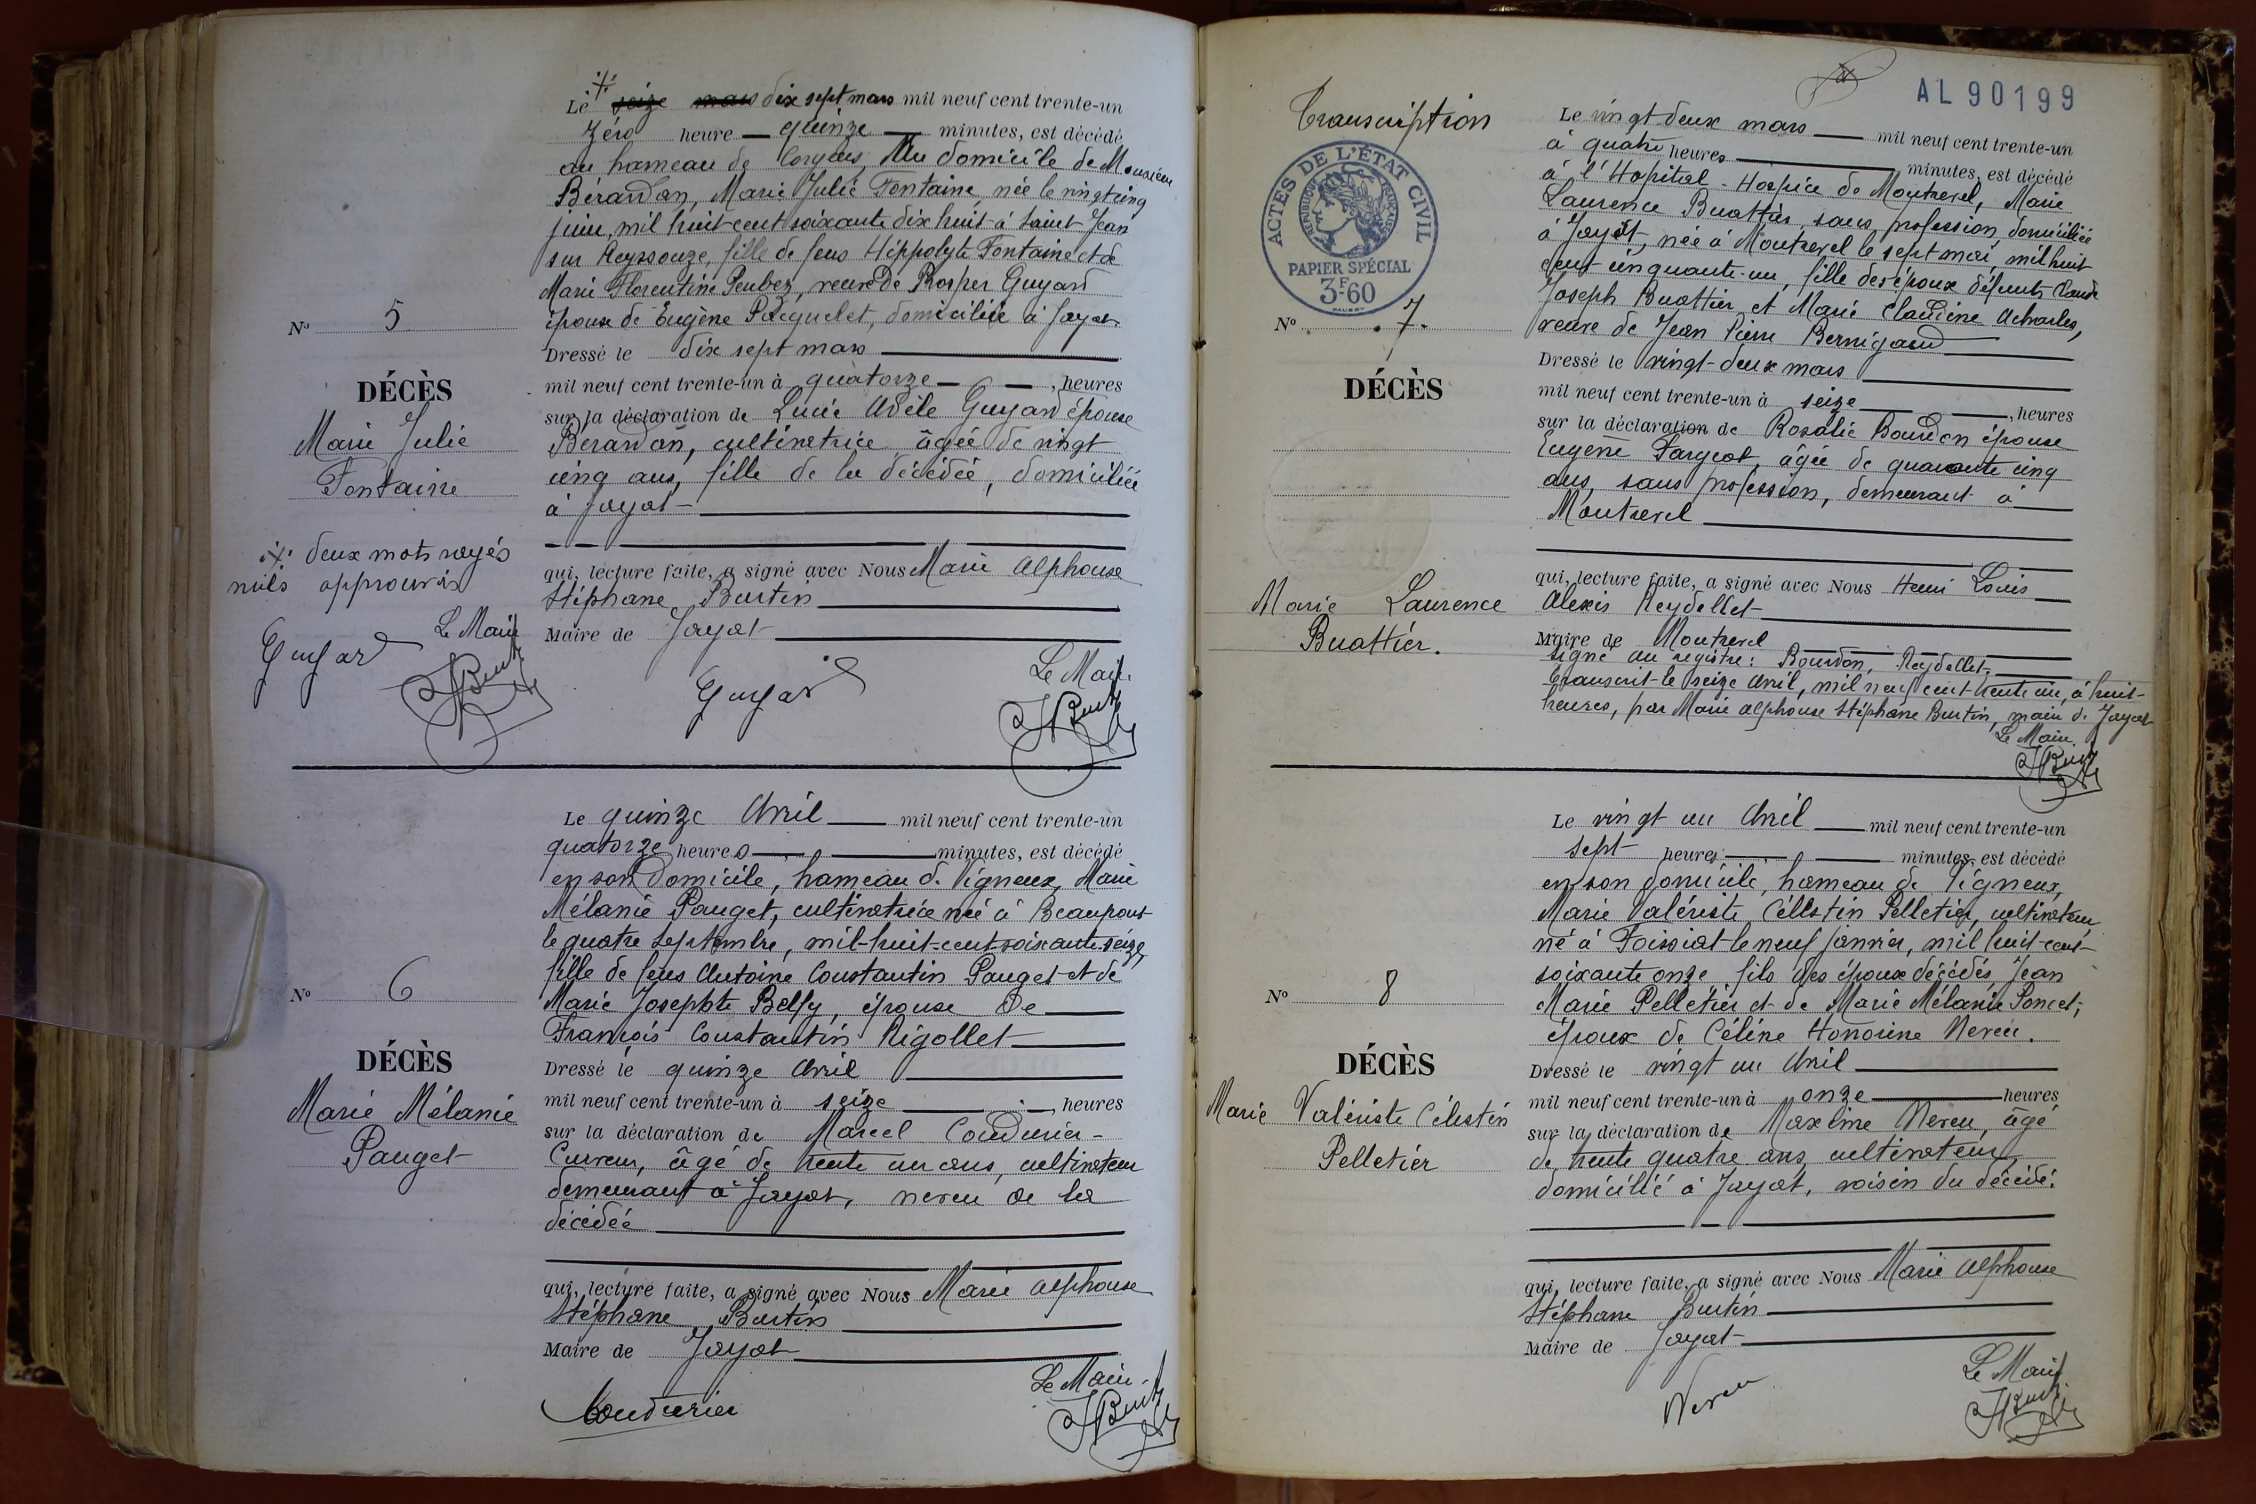 Le seize mars dix sept mars mil neuf cent trente-un
Zéro heure quinze minutes, est décédé
au hameau de Au domicile de Monsieur
Bérardan, Marie Julie Fontaine, née le vingt cinq
juin, mil huit cent soixante dix huit à Saint Jean
sur Reyssouze, fille de feus Hippolyte Fontaine et de
Marie Florentine Peubez, veuve De Prosper Guyard
épouse de Eugène Pacquelet, domiciliée à Jayat
Dressé le dix sept mars
mil neuf cent trente-un à quatorze heures
sur la déclaration de Lucie Adèle Guyard épouse
Bérardan, cultivatrice âgée de vingt
cinq ans, fille de la décédée, domiciliée
à Jayat
qui, lecture faite, a signé avec Nous Marie Alphonse
Stéphane Burtin
Maire de Jayat
Guyard
Le Maire
N° 5
DÉCÈS
Marie Julie
Fontaine
deux mots rayés
nuls approuvés
Le Maire
Guyard
Le quinze Avril mil neuf cent trente-un
quatorze heures minutes, est décédé
en son domicile, hameau de Vigneux, Marie
Mélanie Pauget, cultivatrice née à Beaupont
le quatre Septembre, mil-huit-cent-soixante-seize,
fille de feus Antoine Constantin Pauget et de
Marie Josephte Belfy, épouse De
François Constantin Rigollet
Dressé le quinze Avril
mil neuf cent trente-un à seize heures
sur la déclaration de Marcel Coudurier-
Curveur, âgé de trente un ans, cultivateur
demeurant à Jayat, neveu de la
décédée
qui, lecture faite, a signé avec Nous Marie Alphonse
Stéphane Burtin
Maire de Jayat
Coudurier
Le Maire
N° 6
DÉCÈS
Marie Mélanie
Pauget
AL 90199
Transcription
ACTES DE L'ÉTAT CIVIL
RÉPUBLIQUE FRANÇAISE
PAPIER SPÉCIAL
3F60
N° 7.
DÉCÈS
Marie Laurence
Buattier.
Le vingt-deux mars mil neuf cent trente-un
à quatre heures minutes, est décédé
à l'Hopital-Hospice de Montrevel, Marie
Laurence Buattier, sans profession, domiciliée
à Jayat, née à Montrevel le sept mai, mil huit
cent cinquante-un, fille des époux défunts Claude
Joseph Buattier et Marie Claudine
veuve de Jean Pierre Bernigaud
Dressé le vingt-deux mars
mil neuf cent trente-un à seize heures
sur la déclaration de Rosalie Bourdon épouse
Eugène Fargeot, âgée de quarante cinq
ans, sans profession, demeurant à
Montrevel
qui, lecture faite, a signé avec Nous Henri Louis
Alexis Reydellet
Maire de Montrevel
signé au registre: Bourdon, Reydellet
Transcrit le seize Avril, mil neuf cent trente un, à huit
heures, par Marie Alphonse Stéphane Burtin, maire de Jayat
Le Maire
Le vingt un Avril mil neuf cent trente-un
sept heures minutes, est décédé
en son domicile, hameau de Vigneux,
Marie Valériste Célestin Pelletier, cultivateur,
né à Foissiat le neuf janvier, mil huit-cent-
soixante onze, fils des époux décédés Jean
Marie Pelletier et de Marie Mélanie Poncet,
époux de Céline Honorine Neveu.
Dressé le vingt un Avril
mil neuf cent trente-un à onze heures
sur la déclaration de Maxime Neveu, âgé
de trente quatre ans, cultivateur,
domicilié à Jayat, voisin du décédé.
qui, lecture faite, a signé avec Nous Marie Alphonse
Stéphane Burtin
Maire de Jayat
Neveu
Le Maire
N° 8
DÉCÈS
Marie Valériste Célestin
Pelletier